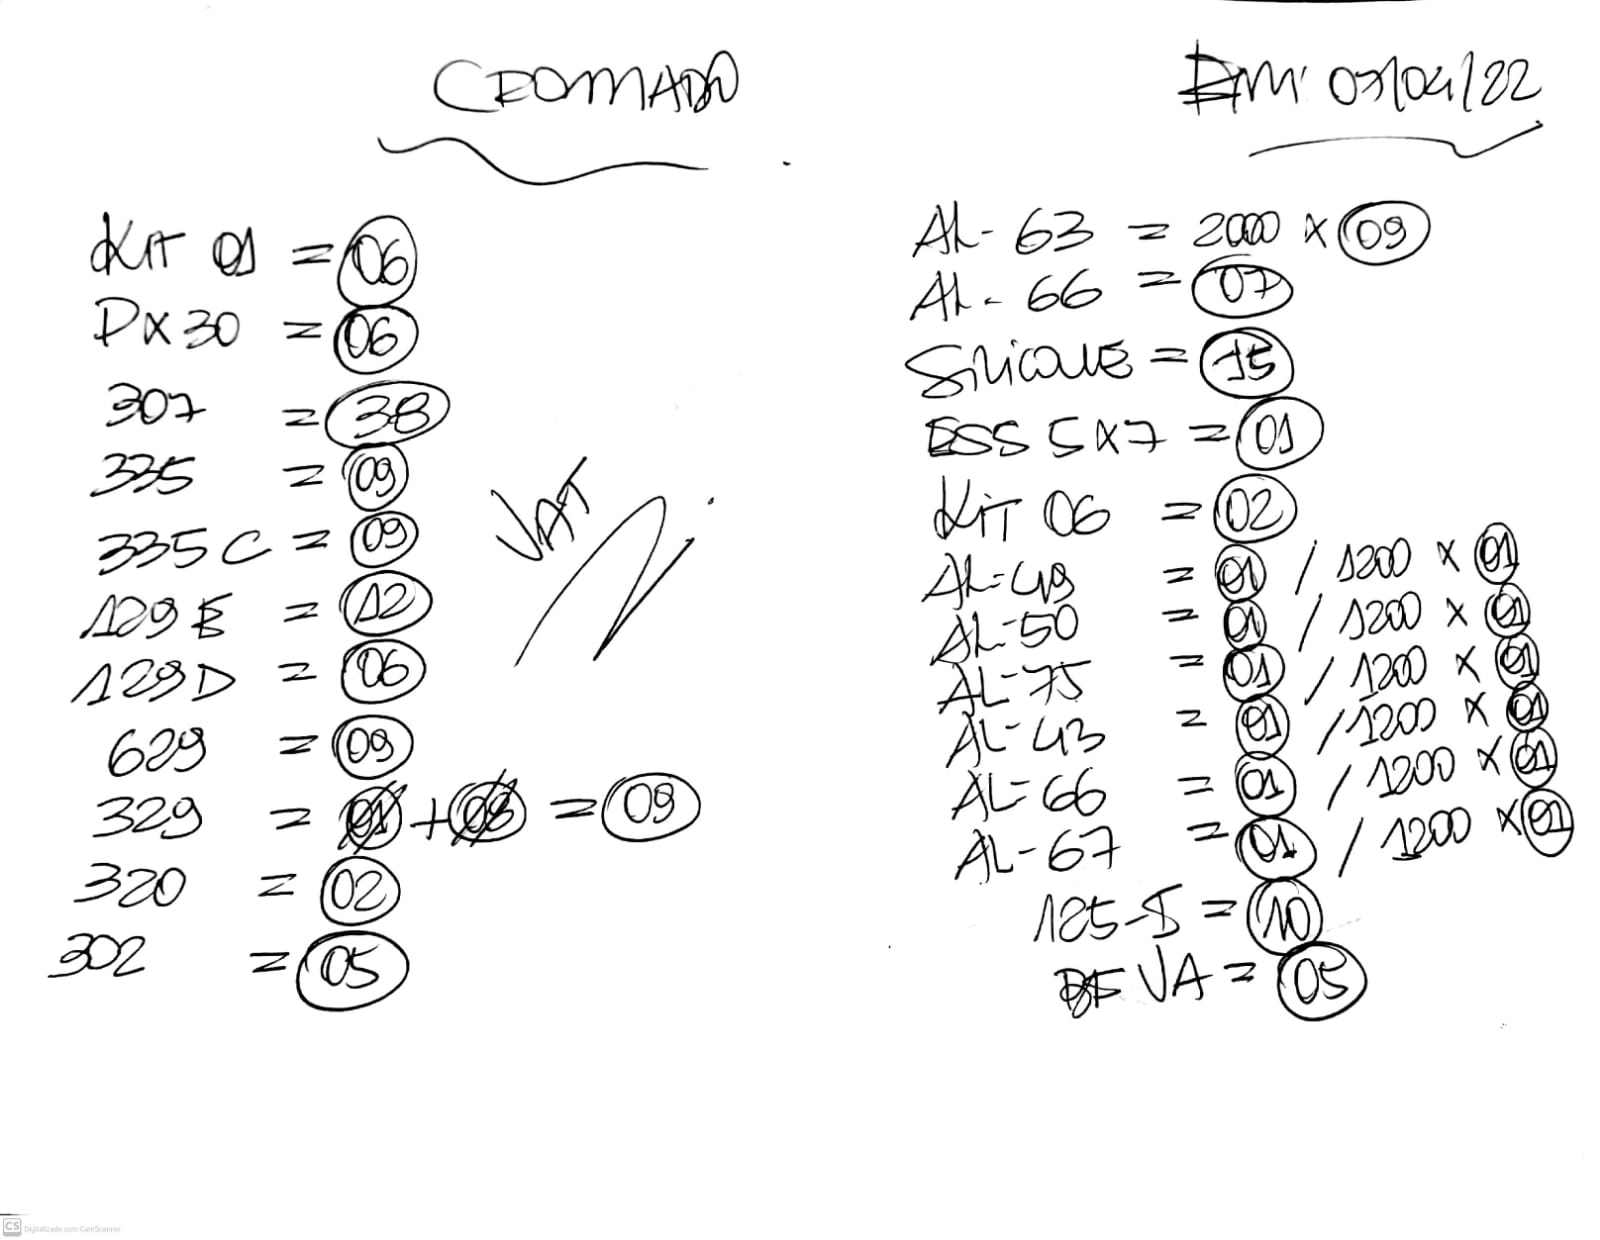 CROMADO
KIT 01 = 06
DX30 = 06
307 = 38
335 = 09
335 C = 09
129 E = 12
129 D = 06
629 = 09
329 = 01 + 08 = 09
320 = 02
302 = 05
EM: 07/04/22
AL- 63 = 2000 x 09
AL- 66 = 07
SILICONE = 15
ESS 5X7 = 01
KIT 06 = 02
AL-49 = 01 / 1200 x 01
AL-50 = 01 / 1200 x 01
AL-75 = 01 / 1200 x 01
AL-43 = 01 / 1200 x 01
AL-66 = 01 / 1200 x 01
AL-67 = 01 / 1200 x 01
125-I = 10
VA = 05
CS Digitalizado com CamScanner